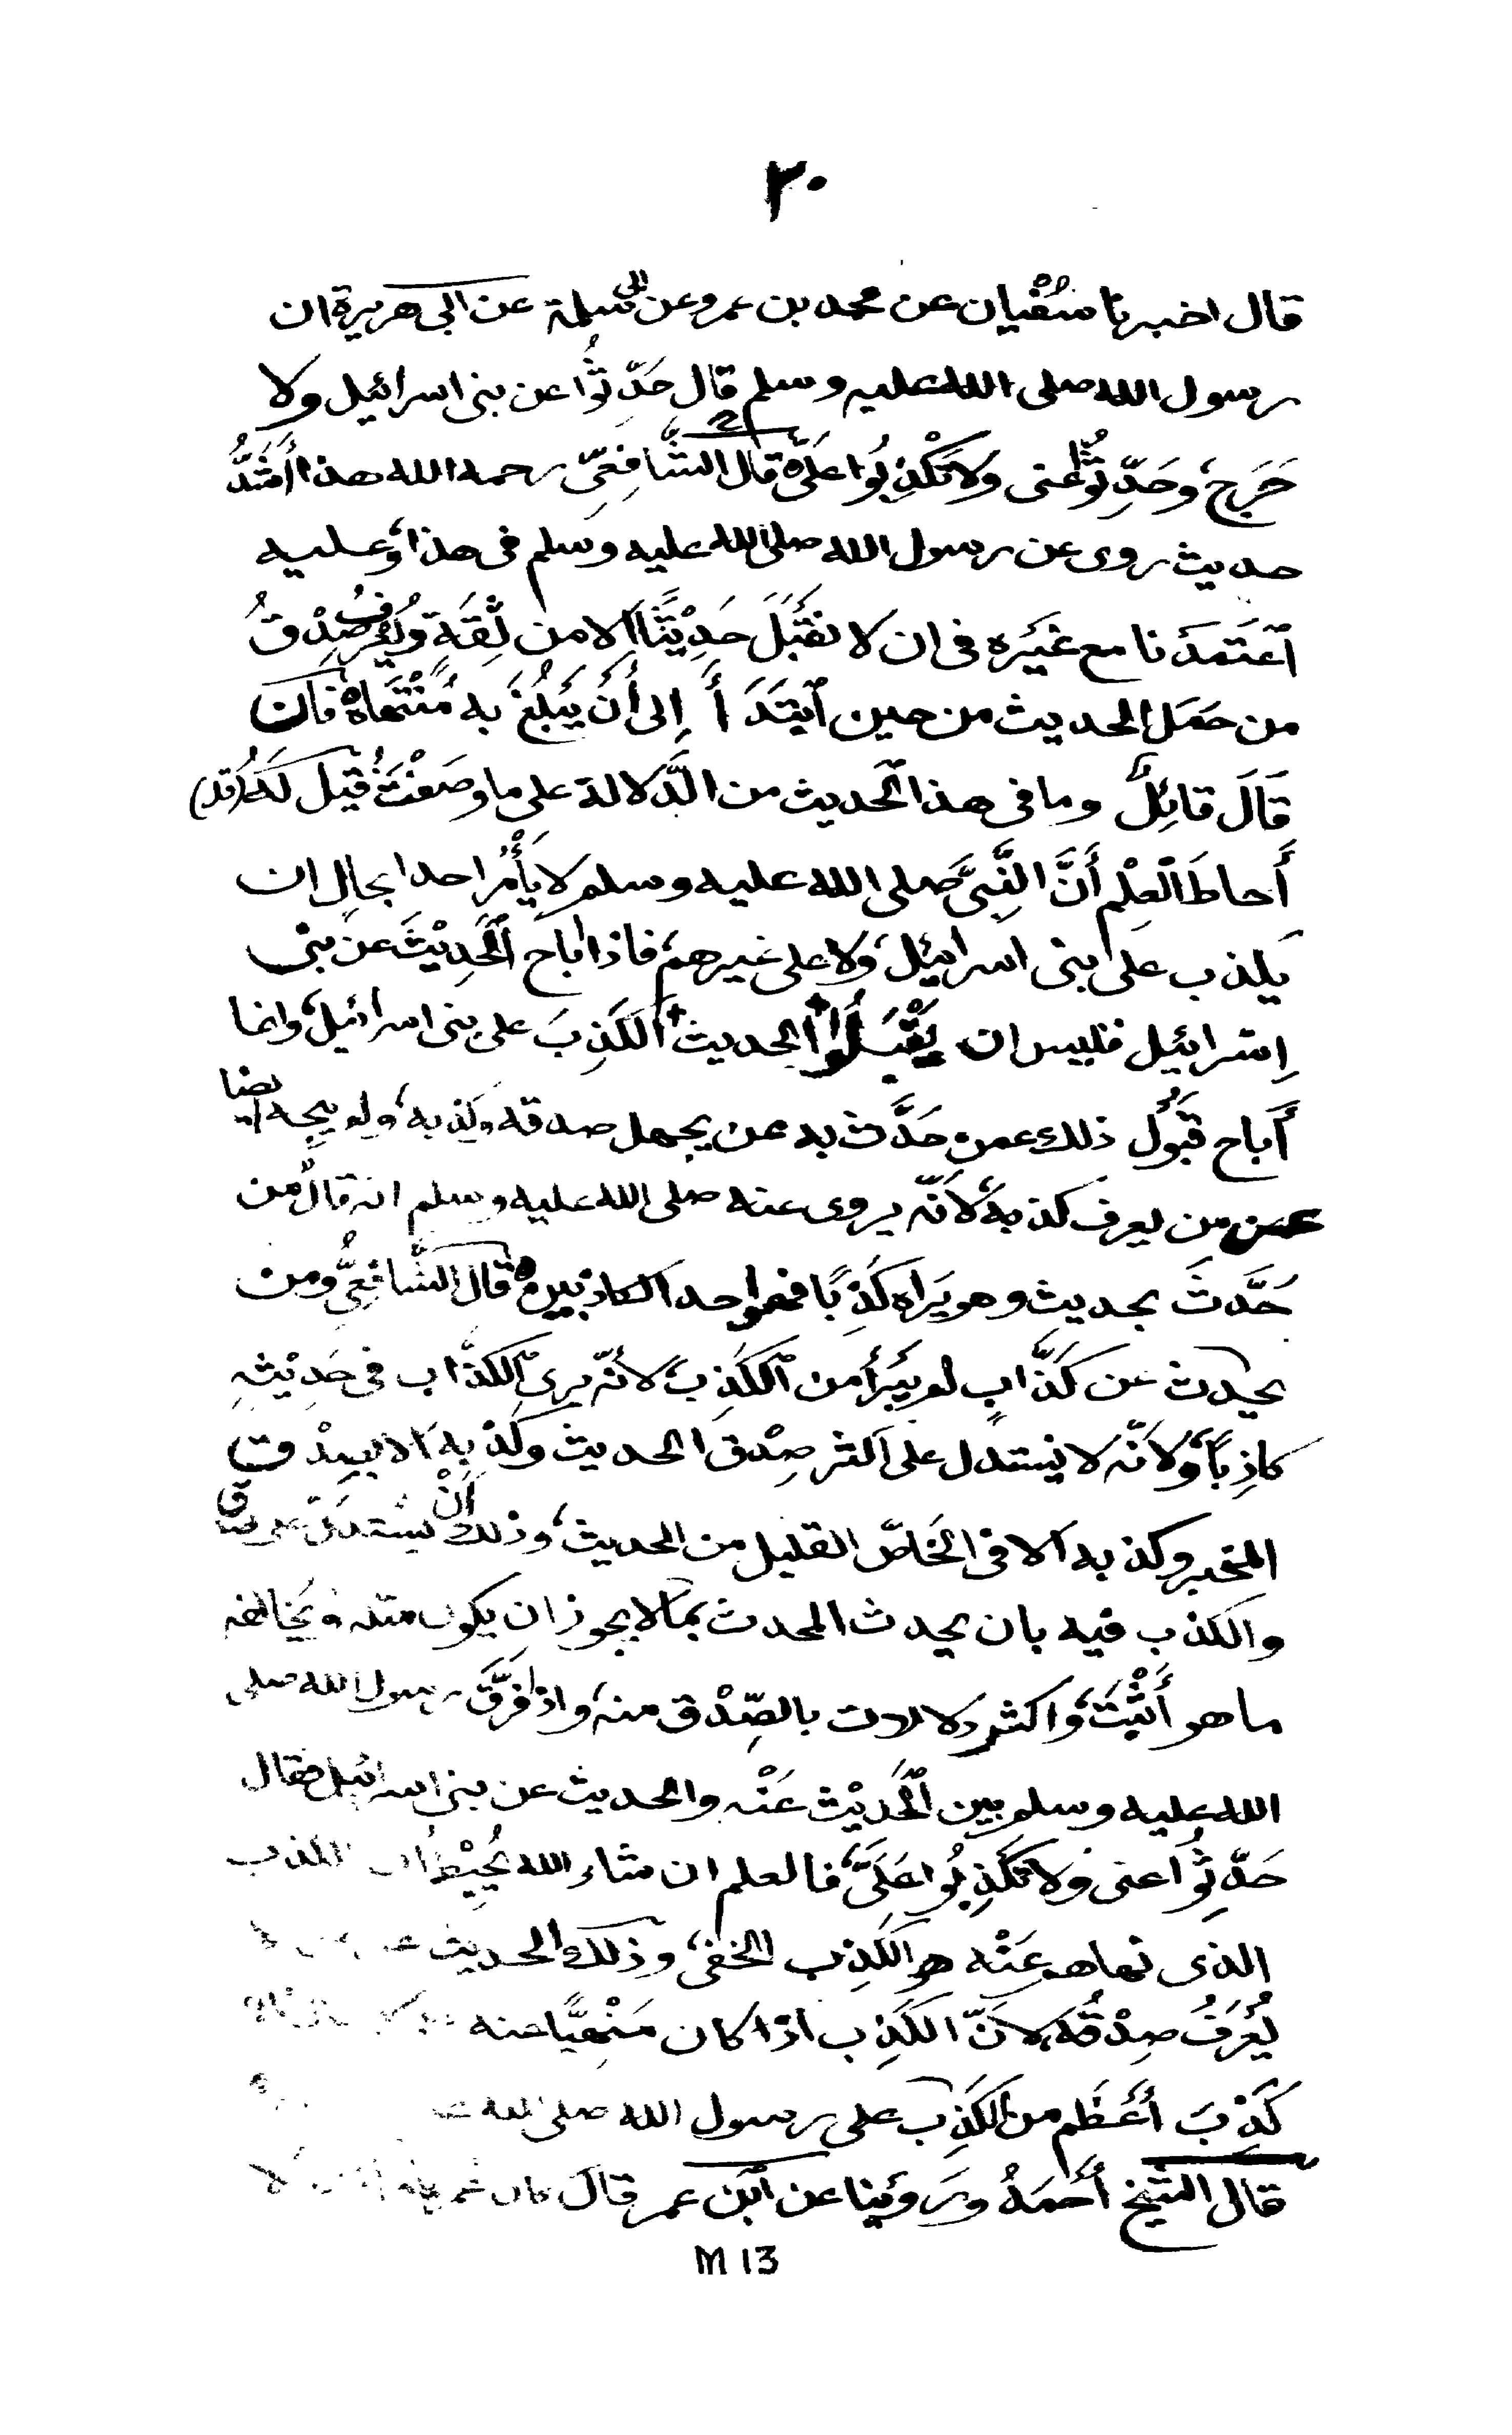 ٣٠
قال اخبرنا سُفْيان عن محمد بن عمرو عن ابى سلمة عن ابى هريرة ان
رسول الله صلى الله عليه وسلم قال حَدِّثُوا عن بنى اسرائيل ولا
حَرَجَ، وحَدِّثُوا عنى ولا تَكْذِبُوا عَلَىَّ ه قال الشَّافِعِىّ رحمه الله هذا أَشَدُّ
حديث روى عن رسول الله صلى الله عليه وسلم فى هذا، وعليه
ٱعتَمَدَنا مع غَيْره فى ان لا نقْبَلَ حَدِيْثًا اِلا من ثِقَة ويُعْرَفُ صِدْقُ
من حَمَلَ الحديث من حين ٱبْتَدَأَ إلى أَنْ يَبْلُغَ به مُنْتَهَاهُ ه فان
قَالَ قائِلٌ وما فى هذا الْحَديث من الدَّلالة على ما وصَفْتَ؟ قُيِل لَهُ (قد)
أَحاطَ الْعِلْم أَنَّ النَّبِىَّ صلى الله عليه وسلم لا يَأْمُر احدا بحالٍ ان
يكذب على بنى اسرائيل، ولا على غيرهم، فاذا اباح ٱلْحَدِيْثَ عن بنى
اِسْرائيل فليس ان يَقْبَلُوا الحديث ٱلْكَذِبَ على بنى اسرائيل، وانما
أَباح قَبُولَ ذلك عمن حَدَّث به عمن يجهل صدقه وكذبه، ولم يبحه ايضا
عمن من يعرف كذبه، لأنّه يروى عنه صلى الله عليه وسلم انه قال من
حَدَّثَ بحديث وهو يَرَاه كَذِبًا فهو احد الكاذبين ه قال الشَّافِعِىُّ ومن
يحدث عن كَذَّابٍ لم يَبْرَأْ من ٱلْكَذِب، لأنّه يرى ٱلْكَذَّاب فى حَدِيْثِهِ
كاذِبًا، ولأنّه لا يستدل على اكثر صِدْق الحديث وكَذِبِه اَلا بصِدْق
المخبر وكذبه اَلا فى الخَاصّ القليل من الحديث، وذلك أَنْ يستدلّ على الصدق
والكذب فيه بان يحدث المحدث بما لا يجوز ان يكون مثله ويُخالفه
ما هو أَثْبَت، واكثر دلالات بالصِّدْق منه، واذا فَرَّقَ رسول الله صلى
الله عليه وسلم بين ٱلْحَدِيْث عَنْه والحديث عن بنى اسرائيل فقال
حَدِّثُوا عنى ولا تَكْذِبُوا عَلَىَّ، فالعلم ان شاء الله يُحِيْطُ ان الكذب
الذى نهاهم عَنْه هو الكَذِب الخفى، وذلك الحديث
يُعْرَفُ صِدْقُه، لأنّ الكَذِب اذا كان مَنْهِيًّا عنه
كَذِبَ أَعْظَم من الكَذِب على رسول الله صلى الله
قال الشيخ أَحْمَدُ ورَوَيْنا عن ٱبْن عمر قال كان
M 13